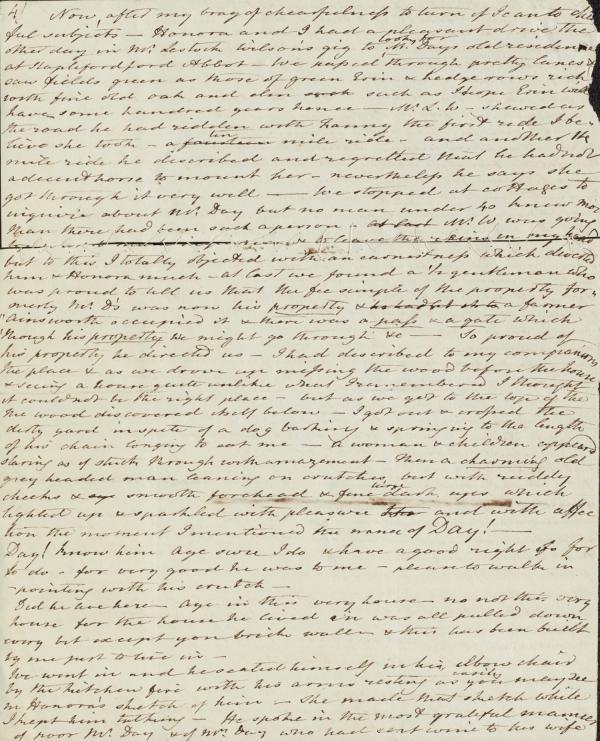 4) Now, after my brag of chearfulness to turn if I can to chear
ful subjects – Honora and I had a pleasant drive the
other day in Mr Lestock Wilsons gig to looking for Mr Days old residence
at Stapleford Abbot – We passed through pretty lanes &
saw fields green as those of green Erin & hedgerows rich
with fine old oak and elm such as I hope Erin will
have some hundred years hence – Mr L. W – shewed us
the road he had ridden with Fanny the first ride I be-
lieve she took – a fourteen ten mile ride – and another
mile ride he described and regretted that he had not
a decent horse to mount her – nevertheless he says she
got through it very well – We stopped at cottages to
inquire about Mr Day but no man under 40 knew more
than there had been such a person – at last Mr W. was going
to leave the reins in my hand
but to this I totally objected with an earnestness which diverted
him & Honora much – at last we found a gentleman who
was proud to tell us that the fee simple of the property for-
merly Mr D's was now his property & a farmer
Ainsworth occupied it & there was a pass & a gate which
though his property we might go through &c – So proud of
his property he directed us – I had described to my companions
the place & as we drove up missing the wood before the house
& seeing a house quite unlike what I remembered I thought
it could not be the right place – but as we got to the top of the
the wood discovered itself below – I got out & crossed the
dirty yard in spite of a dog barking & springing to the length
of his chain longing to eat me – a woman & children appeard
staring as if struck through with amazement – Then a charming old
grey headed man leaning on crutches but with ruddy
cheeks & smooth forehead & fine dark eyes which
lighted up & sparkled with pleasure and with affec
tion the moment I mentioned the name of Day! –
Day! know him aye sure I do & have a good right so for
to do – for very good he was to me – please to walk in
pointing with his crutch –
Did he live here – Aye in this very house – no not this very
house for the house he lived in was all pulled down
every bit except yon brick wall & this has been built
by me just to live in –
We went in and he seated himself in his elbow chair
by the kitchen fire with his arms resting as easily you may see
in Honora's sketch of him – She made that sketch while
I kept him talking – He spoke in the most grateful manner
of poor Mr Day & of Mrs Day who had sent wine to his wife